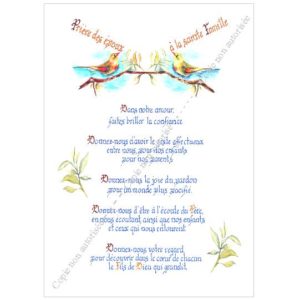 Prière des époux à la sainte Famille
Dans notre amour,
faites briller la confiance.
Donnez-nous d'avoir le geste affectueux
entre nous, pour nos enfants
pour nos parents.
Donnez-nous la joie du pardon
pour un monde plus pacifié.
Donnez-nous d'être à l'écoute du Père,
en nous écoutant ainsi que nos enfants
et ceux qui nous entourent.
Donnez-nous votre regard
pour découvrir dans le cœur de chacun
le Fils de Dieu qui grandit.
Copie non autorisée
Copie non autorisée